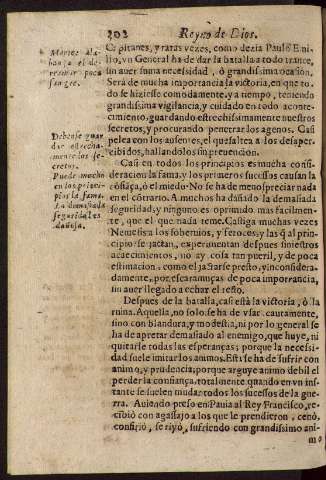 202 Reyno de Dios.
Capitanes, y raras vezes, como dezia Paulo Emi-
lio, vn General ha de dar la batalla a todo trance,
sin auer suma necessidad, ò grandissima ocasion.
Será de mucha importancia la victoria, en que to-
do se hiziesse comodamente, y a tiempo, teniendo
grandissima vigilancia, y cuidado en todo aconte-
cimiento, guardando estrechissimamente nuestros
secretos, y procurando penetrar los agenos. Casi
pelea con los ausentes, el que assalta a los desaper-
cibidos, hallandolos sin preuencion.
Casi en todos los principios es mucha consi-
deracion la fama, y los primeros sucessos causan la
cõfiãça, ò el miedo. No se ha de menospreciar nada
en el cõtrario. A muchos ha dañado la demasiada
seguridad, y ninguno es oprimido mas facilmen-
te, que el que nada teme. Castiga muchas vezes
Nemesis a los soberuios, y feroces, y las q̃ al prin-
cipio se jactan, experimentan despues siniestros
acaecimientos, no ay cosa tan pueril, y de poca
estimacion, como el jactarse presto, y inconsidera-
damente, por escaramuças de poca importancia,
sin auer llegado a echar el resto.
Despues de la batalla, casi està la victoria, ò la
ruina. Aquella, no solo se ha de vsar cautamente,
sino con blandura, y modestia, ni por lo general se
ha de apretar demasiado al enemigo, que huye, ni
quitarse todas las esperanças; porque la necessi-
dad suele irritar los animos. Esta se ha de sufrir con
animo, y prudencia; porque arguye animo debil el
perder la confiança, totalmente, quando en vn ins-
tante se suelen mudar todos los sucessos de la gue-
rra. Auiendo preso en Pauia al Rey Francisco, re-
cibiò con agassajo a los que le prendieron, cenò,
confiriò, se riyò, sufriendo con grandissimo ani-
mo
Marece ala-
bança el de-
rramar poca
sangre.
Deuense guar
dar estrecha-
mente los se-
cretos.
Puede mucho
en los princi-
pios la fama.
La demasiada
seguridad es
dañosa.